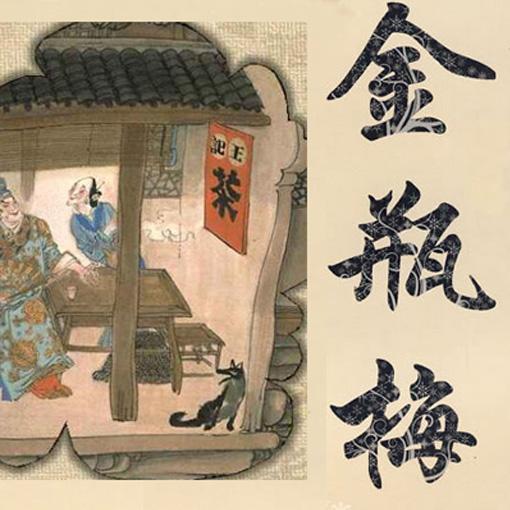 金瓶梅
王記
茶